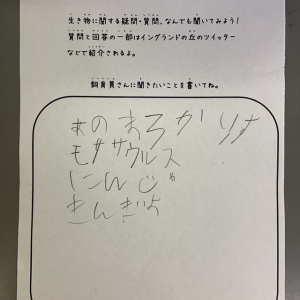 生き物に関する疑問・質問、なんでも聞いてみよう!
質問と回答の一部はイングランドの丘のツイッター
などで紹介されるよ。
飼育員さんに聞きたいことを書いてね。
あのまろかりす
モササウルス
にんじゃ
きんぎよ